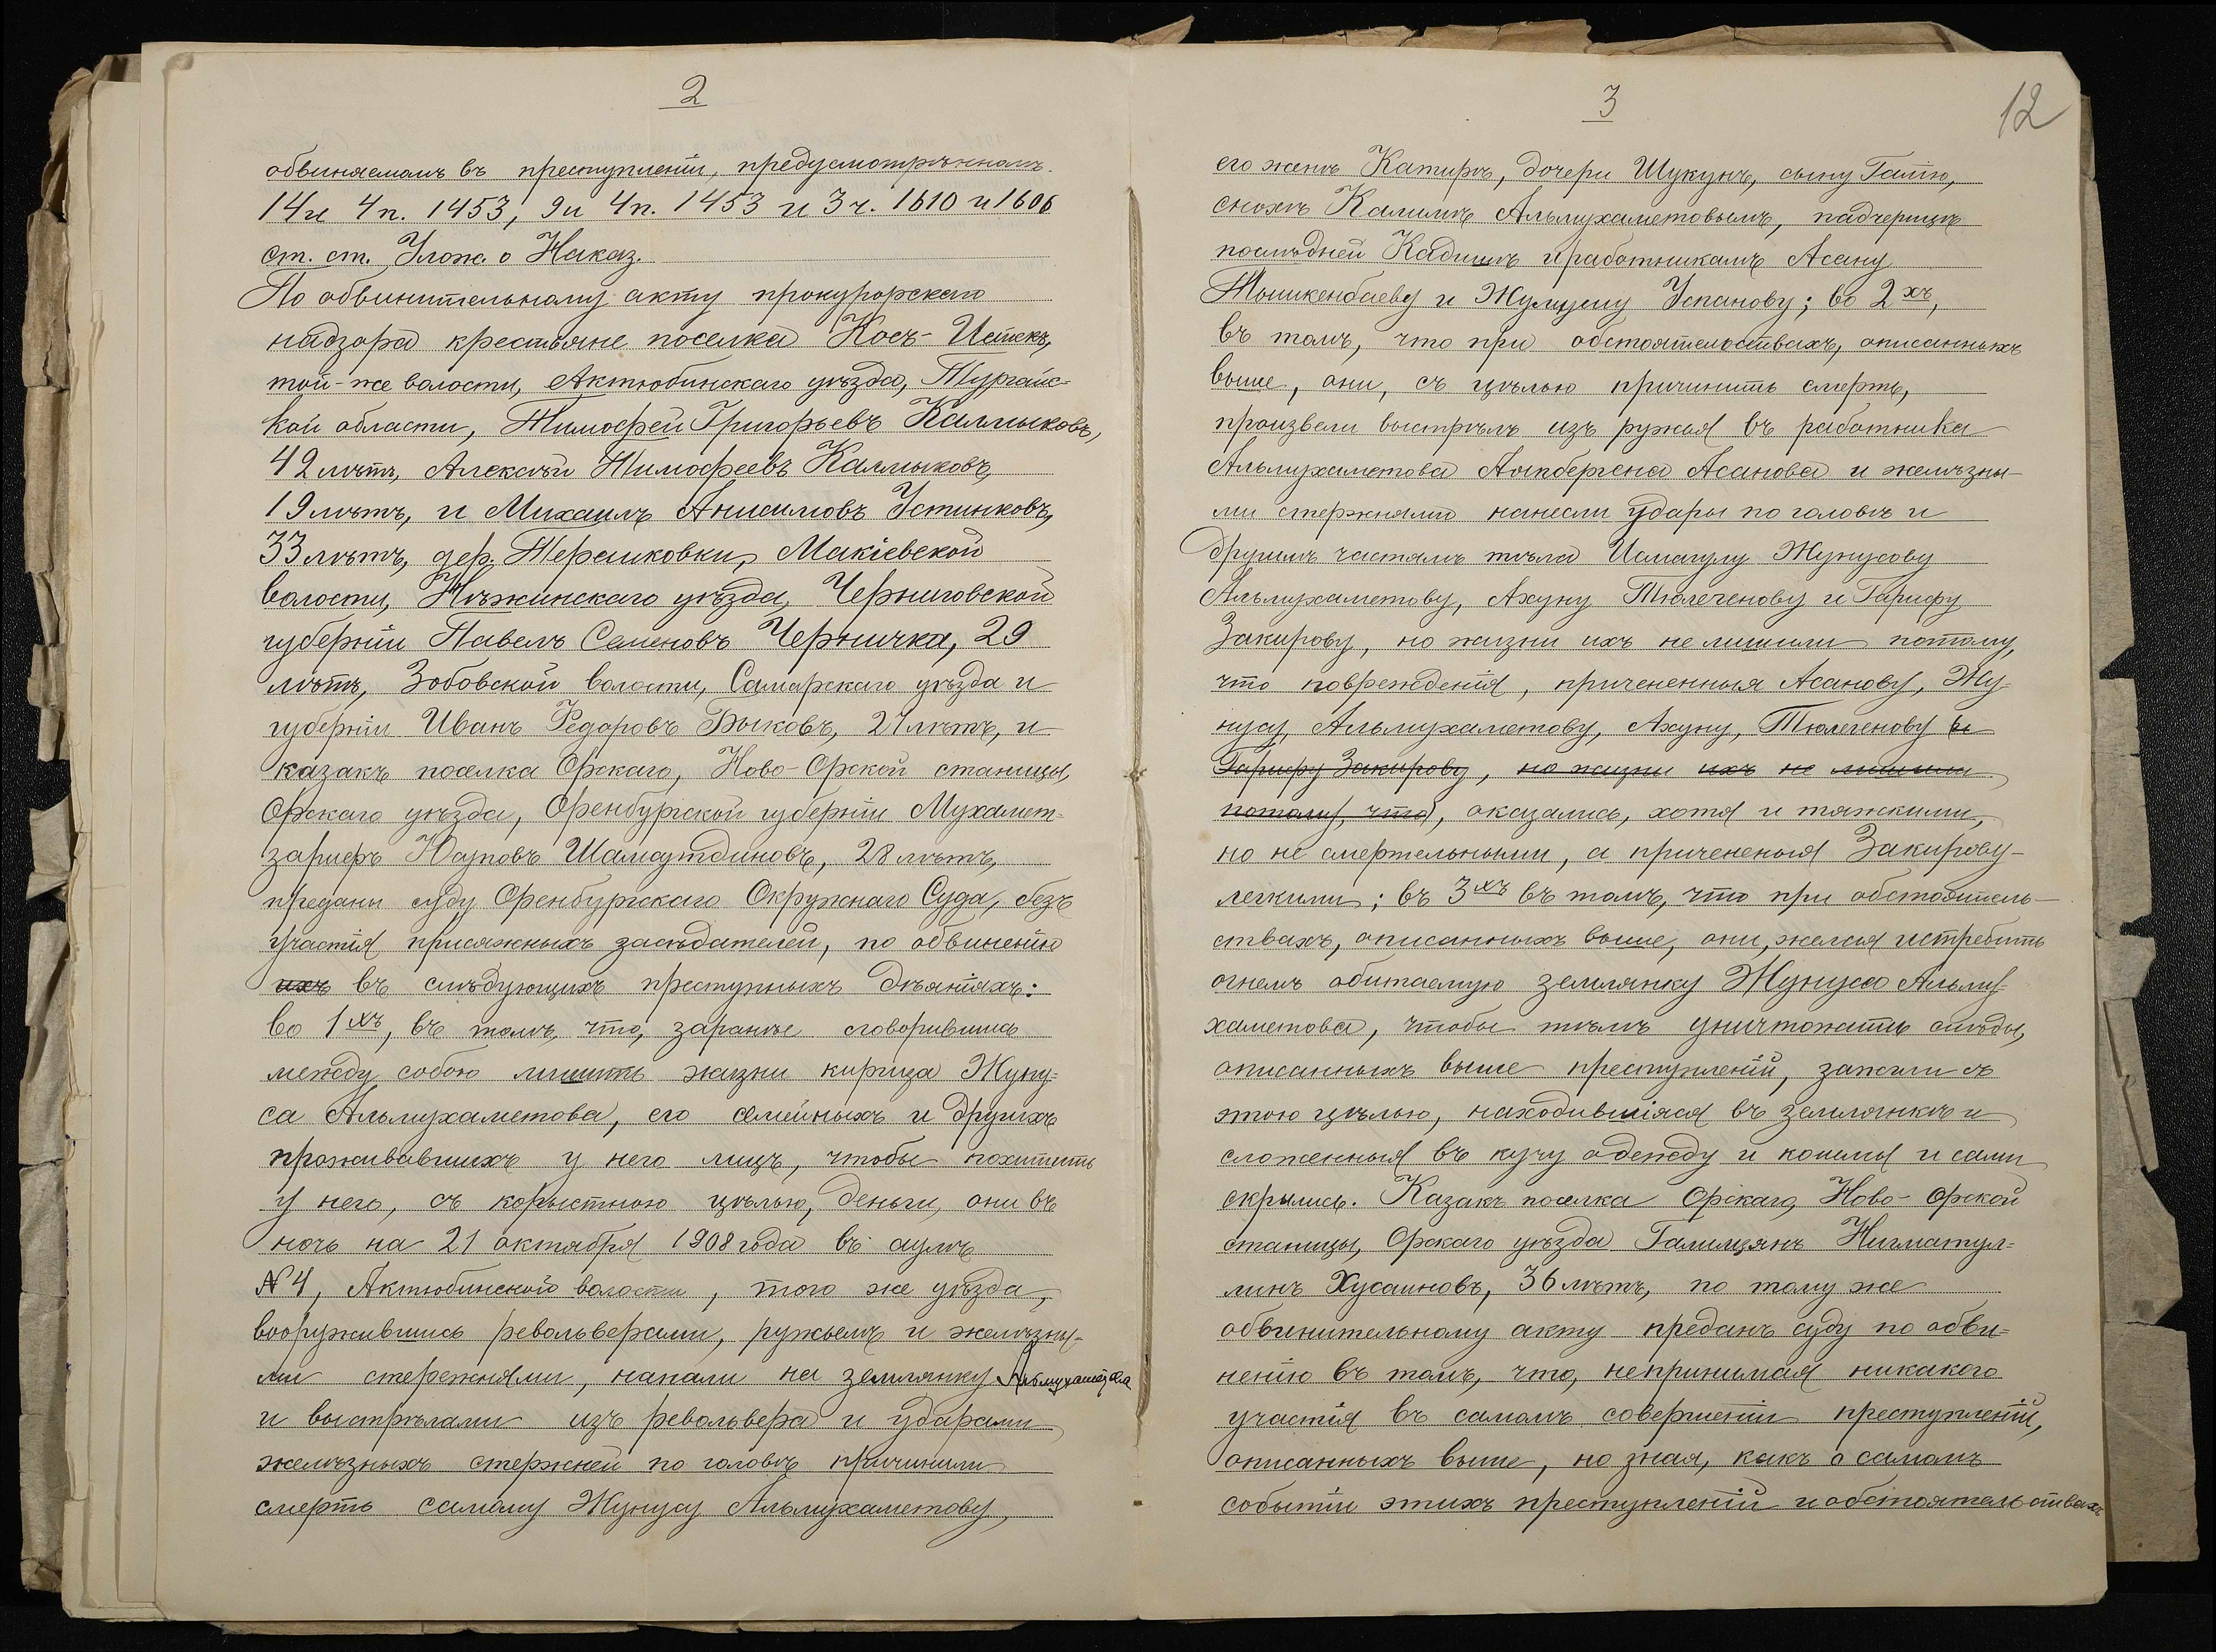 2
обвиняемомъ въ преступленіи, предусмотрѣнномъ
14 и 4 п. 1453, 9 и 4 п. 1453 и 3 ч. 1610 и 1606
ст. ст. Улож. о Наказ.
По обвинительному акту прокурорскаго
надзора крестьяне поселка Носъ-Истекъ,
той-же волости, Актюбинскаго уѣзда, Тургайс-
кой области, Тимофей Григорьевъ Калмыковъ,
42 лѣтъ, Алексѣй Тимофеевъ Калмыковъ,
19 лѣтъ, и Михаилъ Анисимовъ Устинковъ,
33 лѣтъ, дер. Терешковки, Макіевской
волости, Нѣжинскаго уѣзда, Черниговской
губерніи Павелъ Семеновъ Черничка, 29
лѣтъ, Зобовской волости, Самарскаго уѣзда и
губерніи Иванъ Федоровъ Быковъ, 27 лѣтъ, и
казакъ поселка Орскаго, Ново-Орской станицы,
Орскаго уѣзда, Оренбургской губерніи Мухамет-
зарифъ Юсуповъ Шамсутдиновъ, 28 лѣтъ,
преданы суду Оренбургскаго Окружнаго Суда, безъ
участія присяжныхъ засѣдателей, по обвиненію
ихъ въ слѣдующихъ преступныхъ дѣяніяхъ:
во 1хъ, въ томъ, что, заранѣе сговорившись
между собою лишить жизни киргиза Жуну-
са Альмухаметова, его семейныхъ и другихъ
проживавшихъ у него лицъ, чтобы похитить
у него, съ корыстною цѣлью, деньги, они въ
ночь на 21 октября 1908 года въ аулѣ
№ 4, Актюбинской волости, того же уѣзда,
вооружившись револьверами, ружьемъ и желѣзны-
ми стержнями, напали на землянку Альмухаметова
и выстрѣлами изъ револьвера и ударами
желѣзныхъ стержней по головѣ причинили
смерть самому Жунусу Альмухаметову,
3
12
его женѣ Катирѣ, дочери Шукунѣ, сыну Галію,
снохѣ Калимѣ Альмухаметовымъ, падчерицѣ
послѣдней Кадишѣ и работникамъ Асану
Тышкенбаеву и Жулдузу Успанову; во 2хъ,
въ томъ, что при обстоятельствахъ, описанныхъ
выше, они, съ цѣлью причинить смерть,
произвели выстрѣлъ изъ ружья въ работника
Альмухаметова Аикбергена Асанова и желѣзны-
ми стержнями нанесли удары по головѣ и
другимъ частямъ тѣла Исмагулу Жунусову
Альмухаметову, Ахуну Тюлегенову и Гарифу
Закирову, но жизни ихъ не лишили потому,
что поврежденія, причененныя Асанову, Жу-
нусу, Альмухаметову, Ахуну, Тюлегенову и
Гарифу Закирову, но жизни ихъ не лишили
потому, что, оказались, хотя и тяжкими,
но не смертельными, а причененыя Закирову-
легкими; въ 3хъ въ томъ, что при обстоятель-
ствахъ, описанныхъ выше, они, желая истребить
огнемъ обитаемую землянку Жунуса Альму-
хаметова, чтобы тѣмъ уничтожить слѣды,
описанныхъ выше преступленій, зажгли съ
этою цѣлью, находившіяся въ землянкѣ и
сложенныя въ кучу одежду и кошмы и сами
скрылись. Казакъ поселка Орскаго, Ново-Орской
станицы, Орскаго уѣзда Галимзянъ Нигматул-
линъ Хусаиновъ, 36 лѣтъ, по тому же
обвинительному акту преданъ суду по обви-
ненію въ томъ, что, непринимая никакого
участія въ самомъ совершеніи преступленій,
описанныхъ выше, но зная, какъ о самомъ
событіи этихъ преступленій и обстоятельствахъ